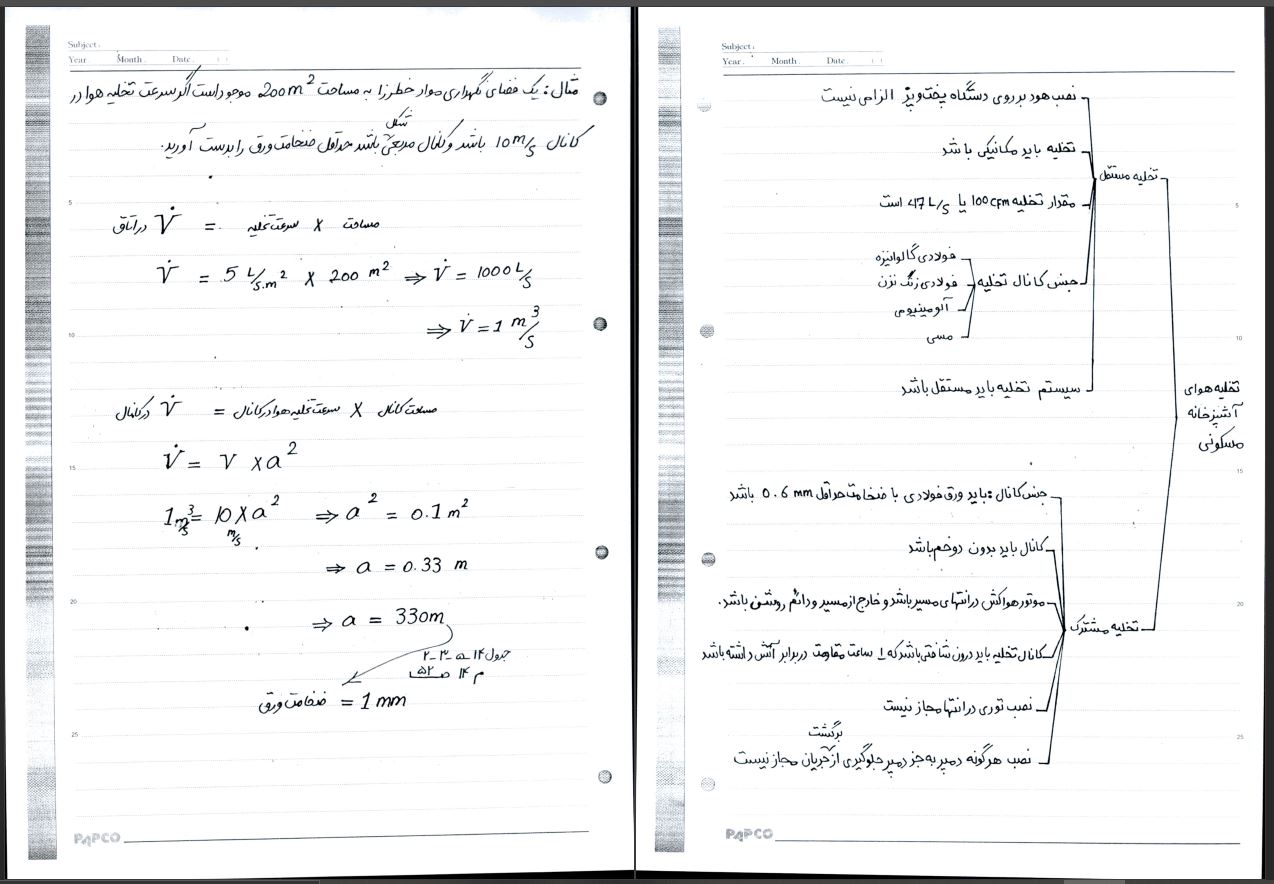 Subject:
Year. Month. Date. ( )
نصب هود بر روی دستگاه پخت و پز الزامی نیست
تخلیه باید مکانیکی باشد
تخلیه مستقل
مقدار تخلیه 100 cfm یا 47 L/s است
جنس کانال تخلیه
فولادی گالوانیزه
فولادی زنگ نزن
آلومینیومی
مسی
سیستم تخلیه باید مستقل باشد
تخلیه هوای
آشپزخانه
مسکونی
جنس کانال: باید ورق فولادی با ضخامت حداقل 0.6 mm باشد
کانال باید بدون دو خم باشد
موتور هواکش در انتهای مسیر باشد و خارج از مسیر و دائم روشن باشد.
تخلیه مشترک
کانال تخلیه باید درون شافتی باشد که 1 ساعت مقاومت در برابر آتش داشته باشد
نصب توری در انتها مجاز نیست
برگشت
نصب هرگونه دمپر به جز دمپر جلوگیری از جریان مجاز نیست
5
10
15
20
25
PAPCO
Subject:
Year. Month. Date. ( )
مثال: یک فضای نگهداری مواد خطرزا به مساحت 200 m² موجود است اگر سرعت تخلیه هوا در
شکل
کانال 10 m/s باشد و کانال مربعی باشد حداقل ضخامت ورق را بدست آورید.
در اتاق V̇ = سرعت تخلیه × مساحت
V̇ = 5 L/s.m² × 200 m² ⇒ V̇ = 1000 L/s
⇒ V̇ = 1 m³/s
در کانال V̇ = سرعت تخلیه هوا در کانال × مساحت کانال
V̇ = V × a²
1 m³/s = 10 m/s × a² ⇒ a² = 0.1 m²
⇒ a = 0.33 m
⇒ a = 330m
جدول ۱۴-۵-۳-۲
م ۱۴ ص ۵۲
ضخامت ورق = 1 mm
5
10
15
20
25
PAPCO